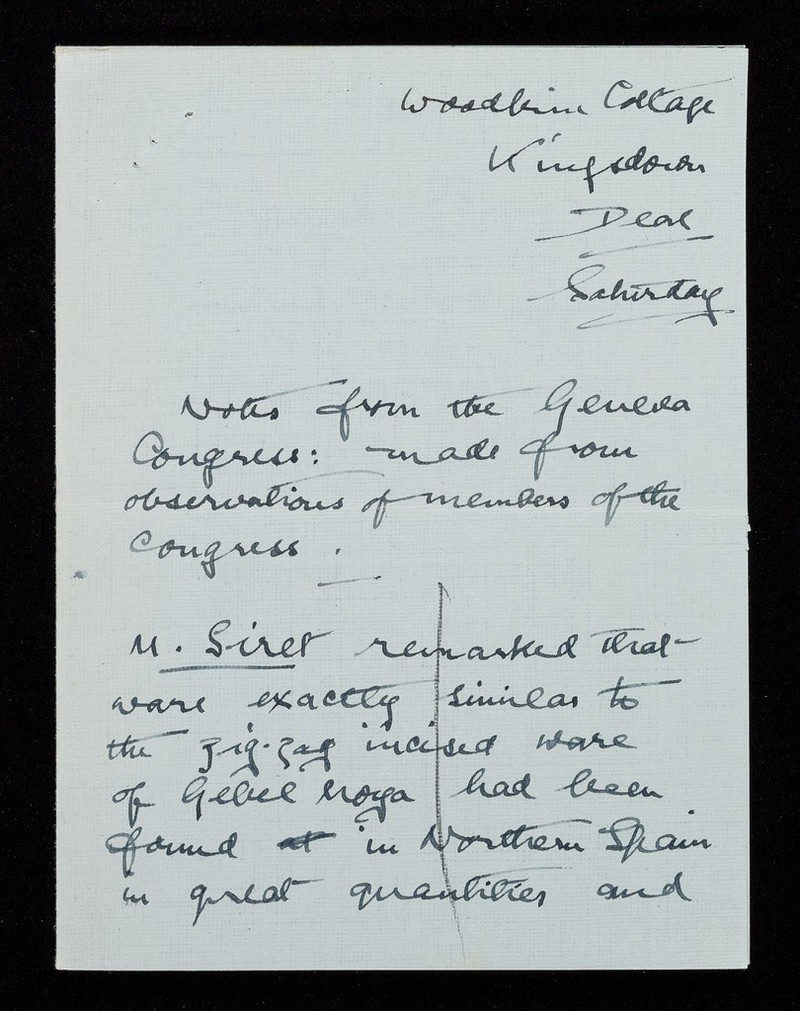 Cottage
Kingsdown
Deal
Saturday
Notes from the Geneva
Congress: made from
observations of members of the
Congress.
M. Siret remarked that
ware exactly similar to
the zig-zag incised ware
of Gebel Moya had been
found at in Northern Spain
in great quantities and